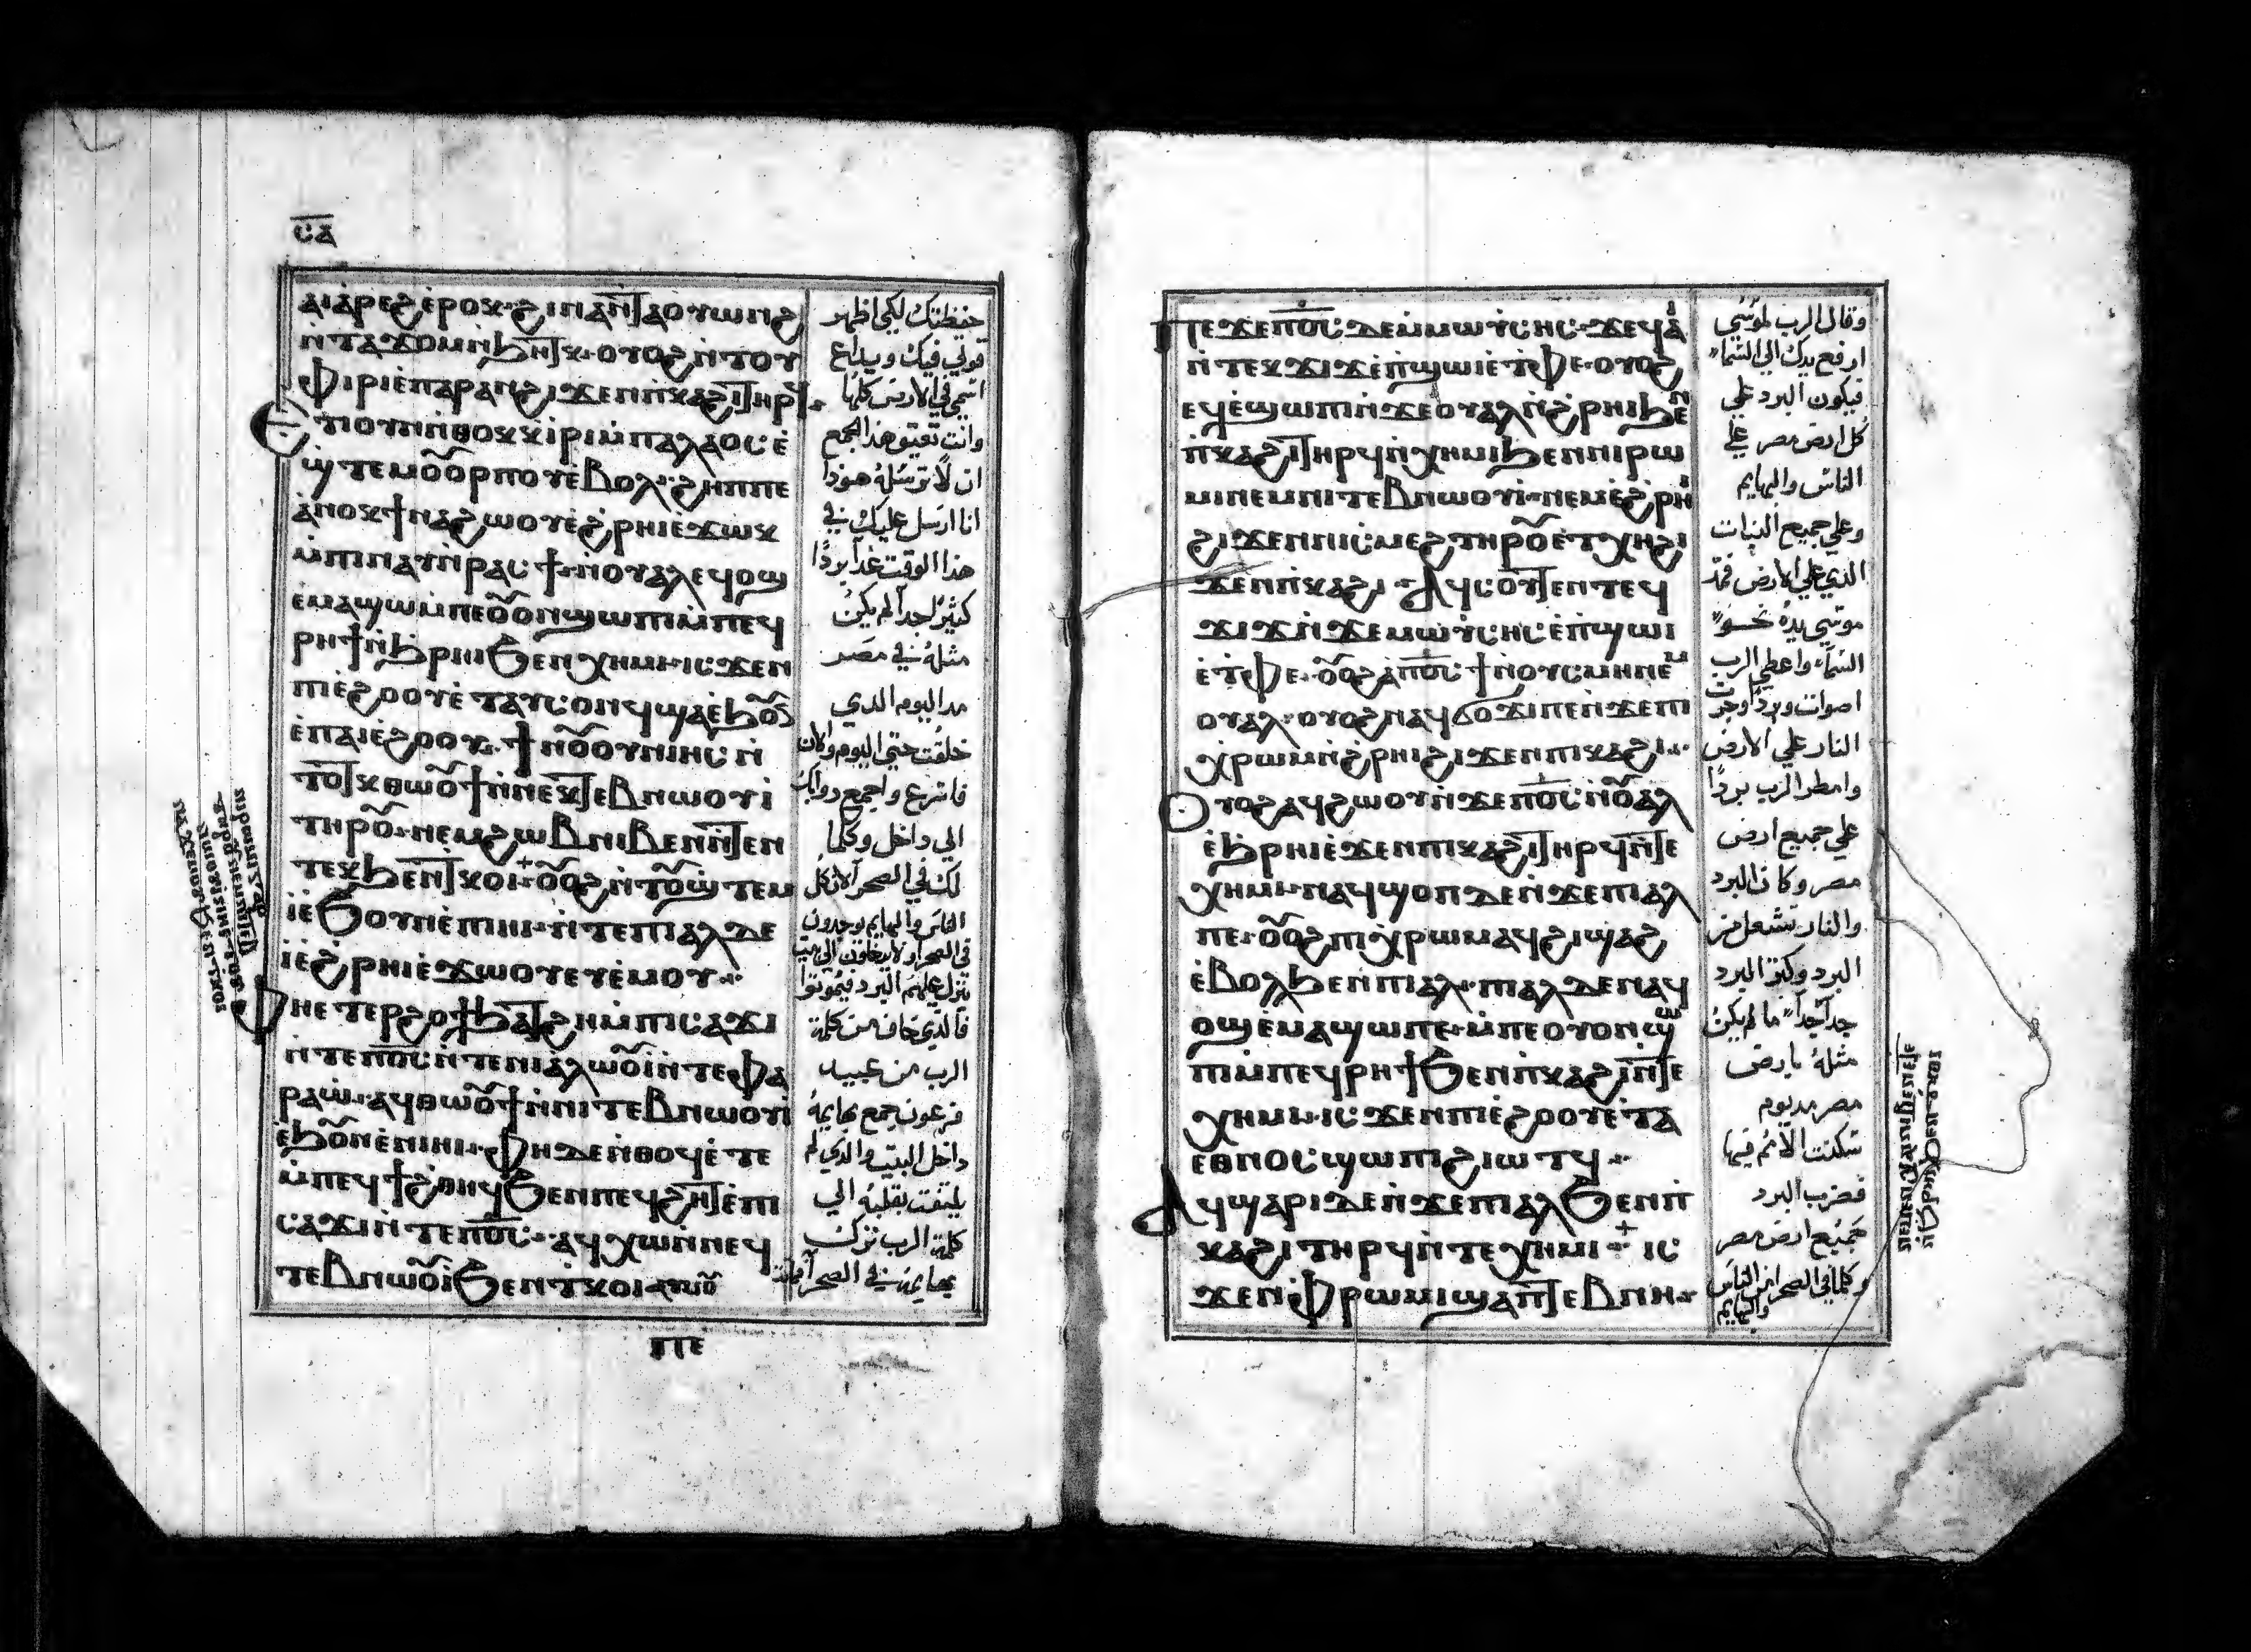 ⲤⲀ
ⲁⲓⲁ̀ⲣⲉϩ ⲉ̀ⲣⲟⲕ ϩⲓⲛⲁ ⲛ̀ⲧⲁⲟⲩⲱⲛϩ
ⲛ̀ⲧⲁϫⲟⲙ ⲛ̀ϧⲏⲧⲕ· ⲟⲩⲟϩ ⲛ̀ⲧⲟⲩ
ⲫⲓⲣⲓ ⲉ̀ⲡⲁⲣⲁⲛ ϩⲓϫⲉⲛ ⲡ̀ⲕⲁϩⲓ ⲧⲏⲣϥ
Ⲉⲧⲓ ⲟⲩⲛ ⲛ̀ⲑⲟⲕ ⲕ̀ⲓⲣⲓ ⲙ̀ⲡⲁⲗⲁⲟⲥ ⲉ̀
ϣ̀ⲧⲉⲙⲟ̄ⲟ̄ⲣⲡⲟⲩ ⲉ̀ⲃⲟⲗ· ϩⲏⲡⲡⲉ
ⲁ̀ⲛⲟⲕ ϯⲛⲁϩⲱⲟⲩ ⲉ̀ϩ̀ⲣⲏⲓ ⲉϫⲱⲕ
ⲙ̀ⲡⲓⲛⲁⲩ ⲛ̀ⲣⲁⲥϯ ⲛ̀ⲟⲩⲁⲗ ⲉϥⲟϣ
ⲉⲙⲁϣⲱ ⲙ̀ⲡⲉⲟ̄ⲟⲛ ϣⲱⲡⲓ ⲙ̀ⲡⲉϥ
ⲣⲏϯ ⲛ̀ϧ̀ⲣⲏⲓ ϧⲉⲛ ⲭⲏⲙⲓ ⲓⲥϫⲉⲛ
ⲡⲓⲉ̀ϩⲟⲟⲩ ⲉ̀ⲧⲁⲩⲥⲟⲛⲧϥ ϣⲁ ⲉ̀ϧⲟ̄ⲛ
ⲉ̀ⲡⲁⲓⲉ̀ϩⲟⲟⲩ. ϯⲛⲟ̄ⲟⲩ ⲟⲩⲛ ⲓⲏⲥ ⲛ̀
ⲧⲟⲧⲕ ⲑⲱⲟ̄ϯ ⲛ̀ⲛⲉⲕⲧⲉⲃⲛⲱⲟⲩⲓ
ⲧⲏⲣⲟ̄· ⲛⲉⲙ ϩⲱⲃ ⲛⲓⲃⲉⲛ ⲛ̀ⲧⲉⲛ
ⲧⲉⲕ ϧⲉⲛ ⲧⲕⲟⲓ· ⲟ̄ⲟ̄ϩ ⲛ̀ⲧⲟ̄ϣ̀ⲧⲉⲙ
ⲓ̀ ⲉ̀ϧⲟⲩⲛ ⲉ̀ⲡⲓⲏⲓ· ⲛ̀ⲧⲉ ⲡⲓⲁⲗ ⲇⲉ
ⲓ̀ ⲉ̀ϩ̀ⲣⲏⲓ ⲉ̀ϫⲱⲟⲩ ⲉⲩⲉ̀ⲙⲟⲩ·:·
Ⲫⲏ ⲉⲧⲉⲣϩⲟϯ ϧⲁⲧϩⲏ ⲙ̀ⲡⲓⲥⲁϫⲓ
ⲛ̀ⲧⲉ ⲡⲟ̅ⲥ̅ ⲛ̀ⲧⲉ ⲛⲓⲁ̀ⲗⲱⲟ̄ⲓ̀ ⲛ̀ⲧⲉ ⲫⲁ
ⲣⲁⲱ̀· ⲁϥⲑⲱⲟ̄ϯ ⲛ̀ⲛⲓⲧⲉⲃⲛⲱⲟⲩⲓ
ⲉ̀ϧⲟ̄ⲛ ⲉ̀ⲛⲓⲏⲓ· ⲫⲏ ⲇⲉ ⲛ̀ⲑⲟϥ ⲉ̀ⲧⲉ
ⲙ̀ⲡⲉϥϯϩ̀ⲑⲏϥ ϧⲉⲛ ⲡⲉϥϩⲏⲧ ⲉ̀ⲡⲓ
ⲥⲁϫⲓ ⲛ̀ⲧⲉ ⲡⲟ̅ⲥ̅· ⲁϥⲭⲱ ⲛ̀ⲛⲉϥ
ⲧⲉⲃⲛⲱⲟ̄ⲓ ϧⲉⲛ ⲧ̀ⲕⲟⲓ
ⲡⲉ
حفظتك لكي اظهر
قوتي فيك ويداع
اسمي في الارض كلها
وانت تعتيق هذا الجمع
ان لا ترسله هوذا
انا ارسل عليك في
هذا الوقت غداً بردًا
كثير جداً لم يكن
مثله في مصر
مد اليوم الدي
خلقت حتي اليوم والان
فاسرع واجمع دوابك
الي داخل وكلما
لك في الصحرا لان كل
الناس والبهايم يوجدون
تنزل عليهم البرد فيموتوا
فالذي خاف من كلمة
الرب من عبيد
فرعون جمع بهايمه
داخل البيت والدي لم
يلتفت بقلبه الي
كلمة الرب ترك
بهايمه في الصحرا
Ⲡⲉϫⲉ ⲡⲟ̅ⲥ̅ ⲇⲉ ⲙ̀ⲙⲱⲩ̀ⲥⲏⲥ· ϫⲉ ϥⲁⲓ
ⲛ̀ⲧⲉⲕϫⲓϫ ⲉ̀ⲡ̀ϣⲱⲓ ⲉ̀ⲧ̀ⲫⲉ· ⲟⲩⲟϩ
ⲉϥⲉ̀ϣⲱⲡⲓ ⲛ̀ϫⲉ ⲟⲩⲁⲗ ⲛ̀ϩ̀ⲣⲏⲓ ϧⲉⲛ
ⲡ̀ⲕⲁϩⲓ ⲧⲏⲣϥ ⲛ̀ⲭⲏⲙⲓ ϧⲉⲛ ⲛⲓⲣⲱ
ⲙⲓ ⲛⲉⲙ ⲛⲓⲧⲉⲃⲛⲱⲟⲩⲓ· ⲛⲉⲙ ⲉ̀ϩ̀ⲣⲏⲓ
ϩⲓϫⲉⲛ ⲛⲓⲥⲓⲙ ⲧⲏⲣⲟ̄ ⲉ̀ⲧⲭⲏ ϩⲓ
ϫⲉⲛ ⲡ̀ⲕⲁϩⲓ· Ⲁϥⲥⲟⲩⲧⲉⲛ ⲧⲉϥ
ϫⲓϫ ⲛ̀ϫⲉ ⲙⲱⲩ̀ⲥⲏⲥ ⲉ̀ⲡ̀ϣⲱⲓ
ⲉ̀ⲧ̀ⲫⲉ· ⲟ̄ⲟ̄ϩ ⲁ̀ ⲡⲟ̅ⲥ̅ ϯ ⲛ̀ⲟⲩⲥⲙⲏ ⲛⲉⲙ
ⲟⲩⲁⲗ· ⲟⲩⲟϩ ⲛⲁϥϭⲟϫⲓ ⲡⲉ ⲛ̀ϫⲉ ⲡⲓ
ⲭ̀ⲣⲱⲙ ⲛ̀ϩ̀ⲣⲏⲓ ϩⲓϫⲉⲛ ⲡⲓⲕⲁϩⲓ·:·
Ⲟⲩⲟϩ ⲁϥϩⲱⲟⲩ ⲛ̀ϫⲉ ⲡⲟ̅ⲥ̅ ⲛ̀ⲟ̄ⲁⲗ
ⲉ̀ϧ̀ⲣⲏⲓ ⲉ̀ϫⲉⲛ ⲡⲓⲕⲁϩⲓ ⲧⲏⲣϥ ⲛ̀ⲧⲉ
ⲭⲏⲙⲓ· ⲛⲁϥϣⲟⲡ ⲇⲉ ⲛ̀ϫⲉ ⲡⲓⲁⲗ
ⲡⲉ· ⲟ̄ⲟ̄ϩ ⲡⲓⲭ̀ⲣⲱⲙ ⲁϥϩⲓϣⲁϩ
ⲉ̀ⲃⲟⲗ ϧⲉⲛ ⲡⲓⲁⲗ· ⲡⲓⲁⲗ ⲇⲉ ⲛⲁϥ
ⲟϣ ⲉ̀ⲙⲁϣⲱ ⲡⲉ· ⲙ̀ⲡⲉ ⲟⲩⲟⲛ ϣⲱ
ⲡⲓ ⲙ̀ⲡⲉϥⲣⲏϯ ϧⲉⲛ ⲡ̀ⲕⲁϩⲓ ⲛ̀ⲧⲉ
ⲭⲏⲙⲓ· ⲓⲥϫⲉⲛ ⲡⲓⲉ̀ϩⲟⲟⲩ ⲉ̀ⲧⲁ
ⲉⲑⲛⲟⲥ ϣⲱⲡⲓ ϩⲓⲱⲧϥ·:·
Ⲁϥϣⲁⲣⲓ ⲇⲉ ⲛ̀ϫⲉ ⲡⲓⲁⲗ ϧⲉⲛ ⲡ̀
ⲕⲁϩⲓ ⲧⲏⲣϥ ⲛ̀ⲧⲉ ⲭⲏⲙⲓ· ⲓⲥ
ϫⲉⲛ ⲫ̀ⲣⲱⲙⲓ ϣⲁ ⲡⲧⲉⲃⲛⲏ·
وقال الرب لموسي
ارفع يدك الي السما
فيكون البرد علي
كل ارض مصر علي
الناس والبهايم
وعلي جميع النبات
الذي علي الارض فمد
موسي يده نحو
السما واعطي الرب
اصوات وبردا وجرت
النار علي الارض
وامطر الرب بردًا
علي جميع ارض
مصر وكان البرد
والنار تشتعل من
البرد وكثر البرد
جداً جداً ما لم يكن
مثله بارض
مصر مد يوم
سكنت الامم فيها
فضرب البرد
جميع ارض مصر
والبهايم